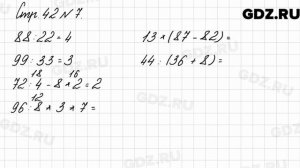 GDZ.RU
Стр. 42 № 7.
88 : 22 = 4
99 : 33 = 3
18 16
72 : 4 - 8 * 2 = 2
12
96 : 8 * 3 * 7 =
13 * (87 - 82) =
44 : (36 + 8) =
GDZ.RU